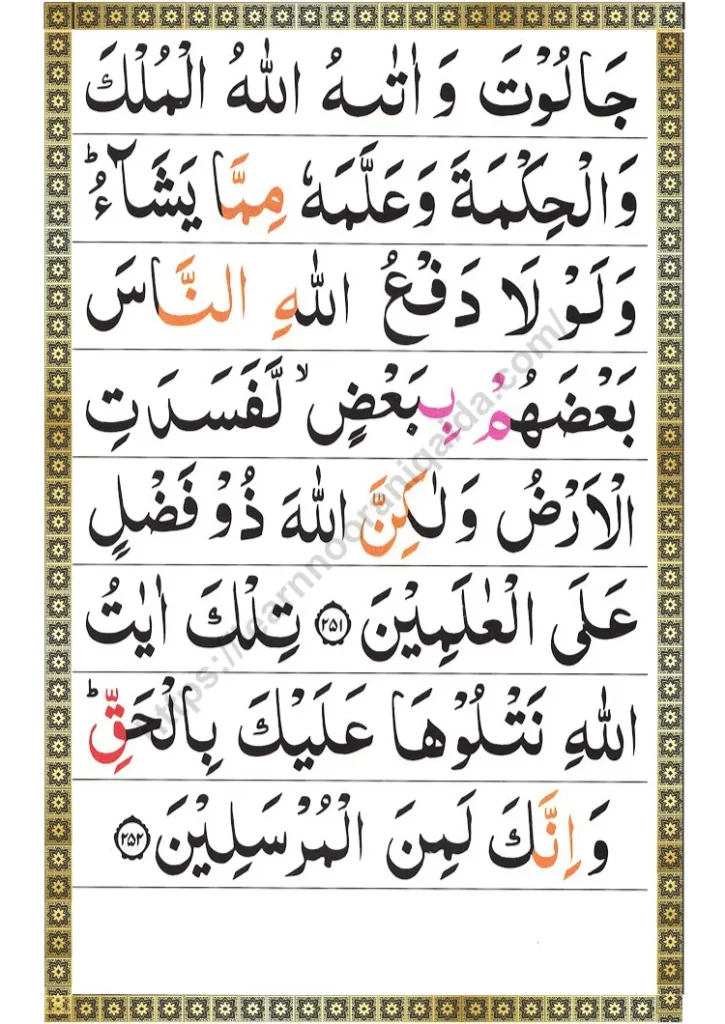 جَالُوْتَ وَ اٰتٰىهُ اللّٰهُ الْمُلْكَ
وَالْحِكْمَةَ وَعَلَّمَهٗ مِمَّا يَشَآءُ ؕ
وَلَوْ لَا دَفْعُ اللّٰهِ النَّاسَ
بَعْضَهُمْ بِبَعْضٍ ۙ لَّفَسَدَتِ
الْاَرْضُ وَلٰكِنَّ اللّٰهَ ذُوْ فَضْلٍ
عَلَى الْعٰلَمِيْنَ ﴿۲۵۱﴾ تِلْكَ اٰيٰتُ
اللّٰهِ نَتْلُوْهَا عَلَيْكَ بِالْحَقِّ ؕ
وَ اِنَّكَ لَمِنَ الْمُرْسَلِيْنَ ﴿۲۵۲﴾
https://learnnooraniqaida.com/